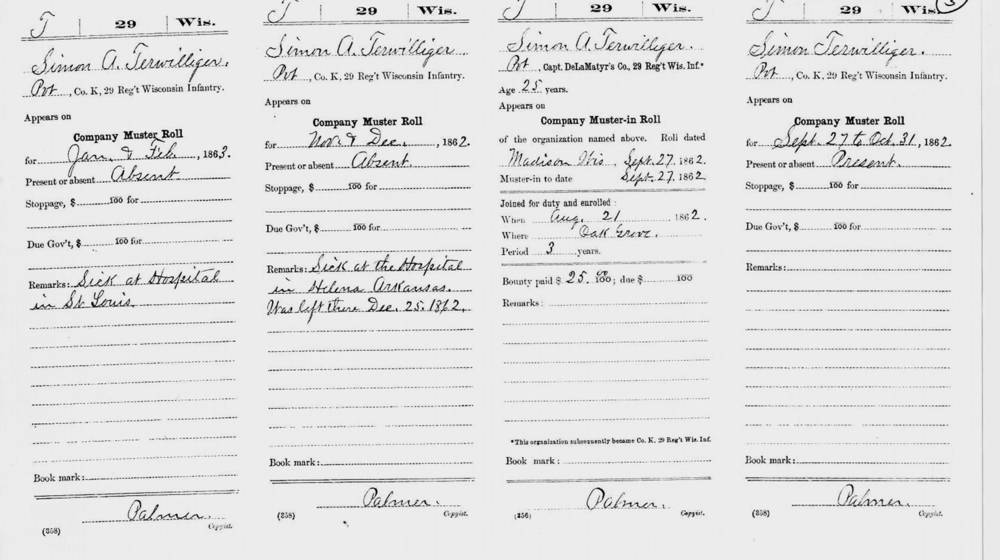 T | 29 | Wis.
Simon A. Terwilliger.
Pvt , Co. K, 29 Reg't Wisconsin Infantry.
Appears on
Company Muster Roll
for Jan. & Feb. , 1863.
Present or absent Absent
Stoppage, $ 100 for
Due Gov't, $ 100 for
Remarks: Sick at Hospital
in St Louis.
Book mark:
Palmer.
(358) Copyist.
T | 29 | Wis.
Simon A. Terwilliger
Pvt , Co. K, 29 Reg't Wisconsin Infantry.
Appears on
Company Muster Roll
for Nov. & Dec. , 1862.
Present or absent Absent
Stoppage, $ 100 for
Due Gov't, $ 100 for
Remarks: Sick at the Hospital
in Helena Arkansas.
Was left there Dec. 25. 1862.
Book mark:
Palmer.
(358) Copyist.
T | 29 | Wis.
Simon A. Terwilliger.
Pvt , Capt. DeLaMatyr's Co., 29 Reg't Wis. Inf.*
Age 25 years.
Appears on
Company Muster-in Roll
of the organization named above. Roll dated
Madison Wis , Sept. 27, 1862.
Muster-in to date Sept. 27, 1862
Joined for duty and enrolled:
When Aug. 21 1862.
Where Oak Grove.
Period 3 years.
Bounty paid $ 25. 00 100; due $ 100
Remarks:
*This organization subsequently became Co. K. 29 Reg't Wis. Inf.
Book mark:
Palmer.
(356) Copyist.
T | 29 | Wis. 3
Simon Terwilliger.
Pvt , Co. K, 29 Reg't Wisconsin Infantry.
Appears on
Company Muster Roll
for Sept. 27 to Oct. 31, 1862.
Present or absent Present.
Stoppage, $ 100 for
Due Gov't, $ 100 for
Remarks:
Book mark:
Palmer.
(358) Copyist.